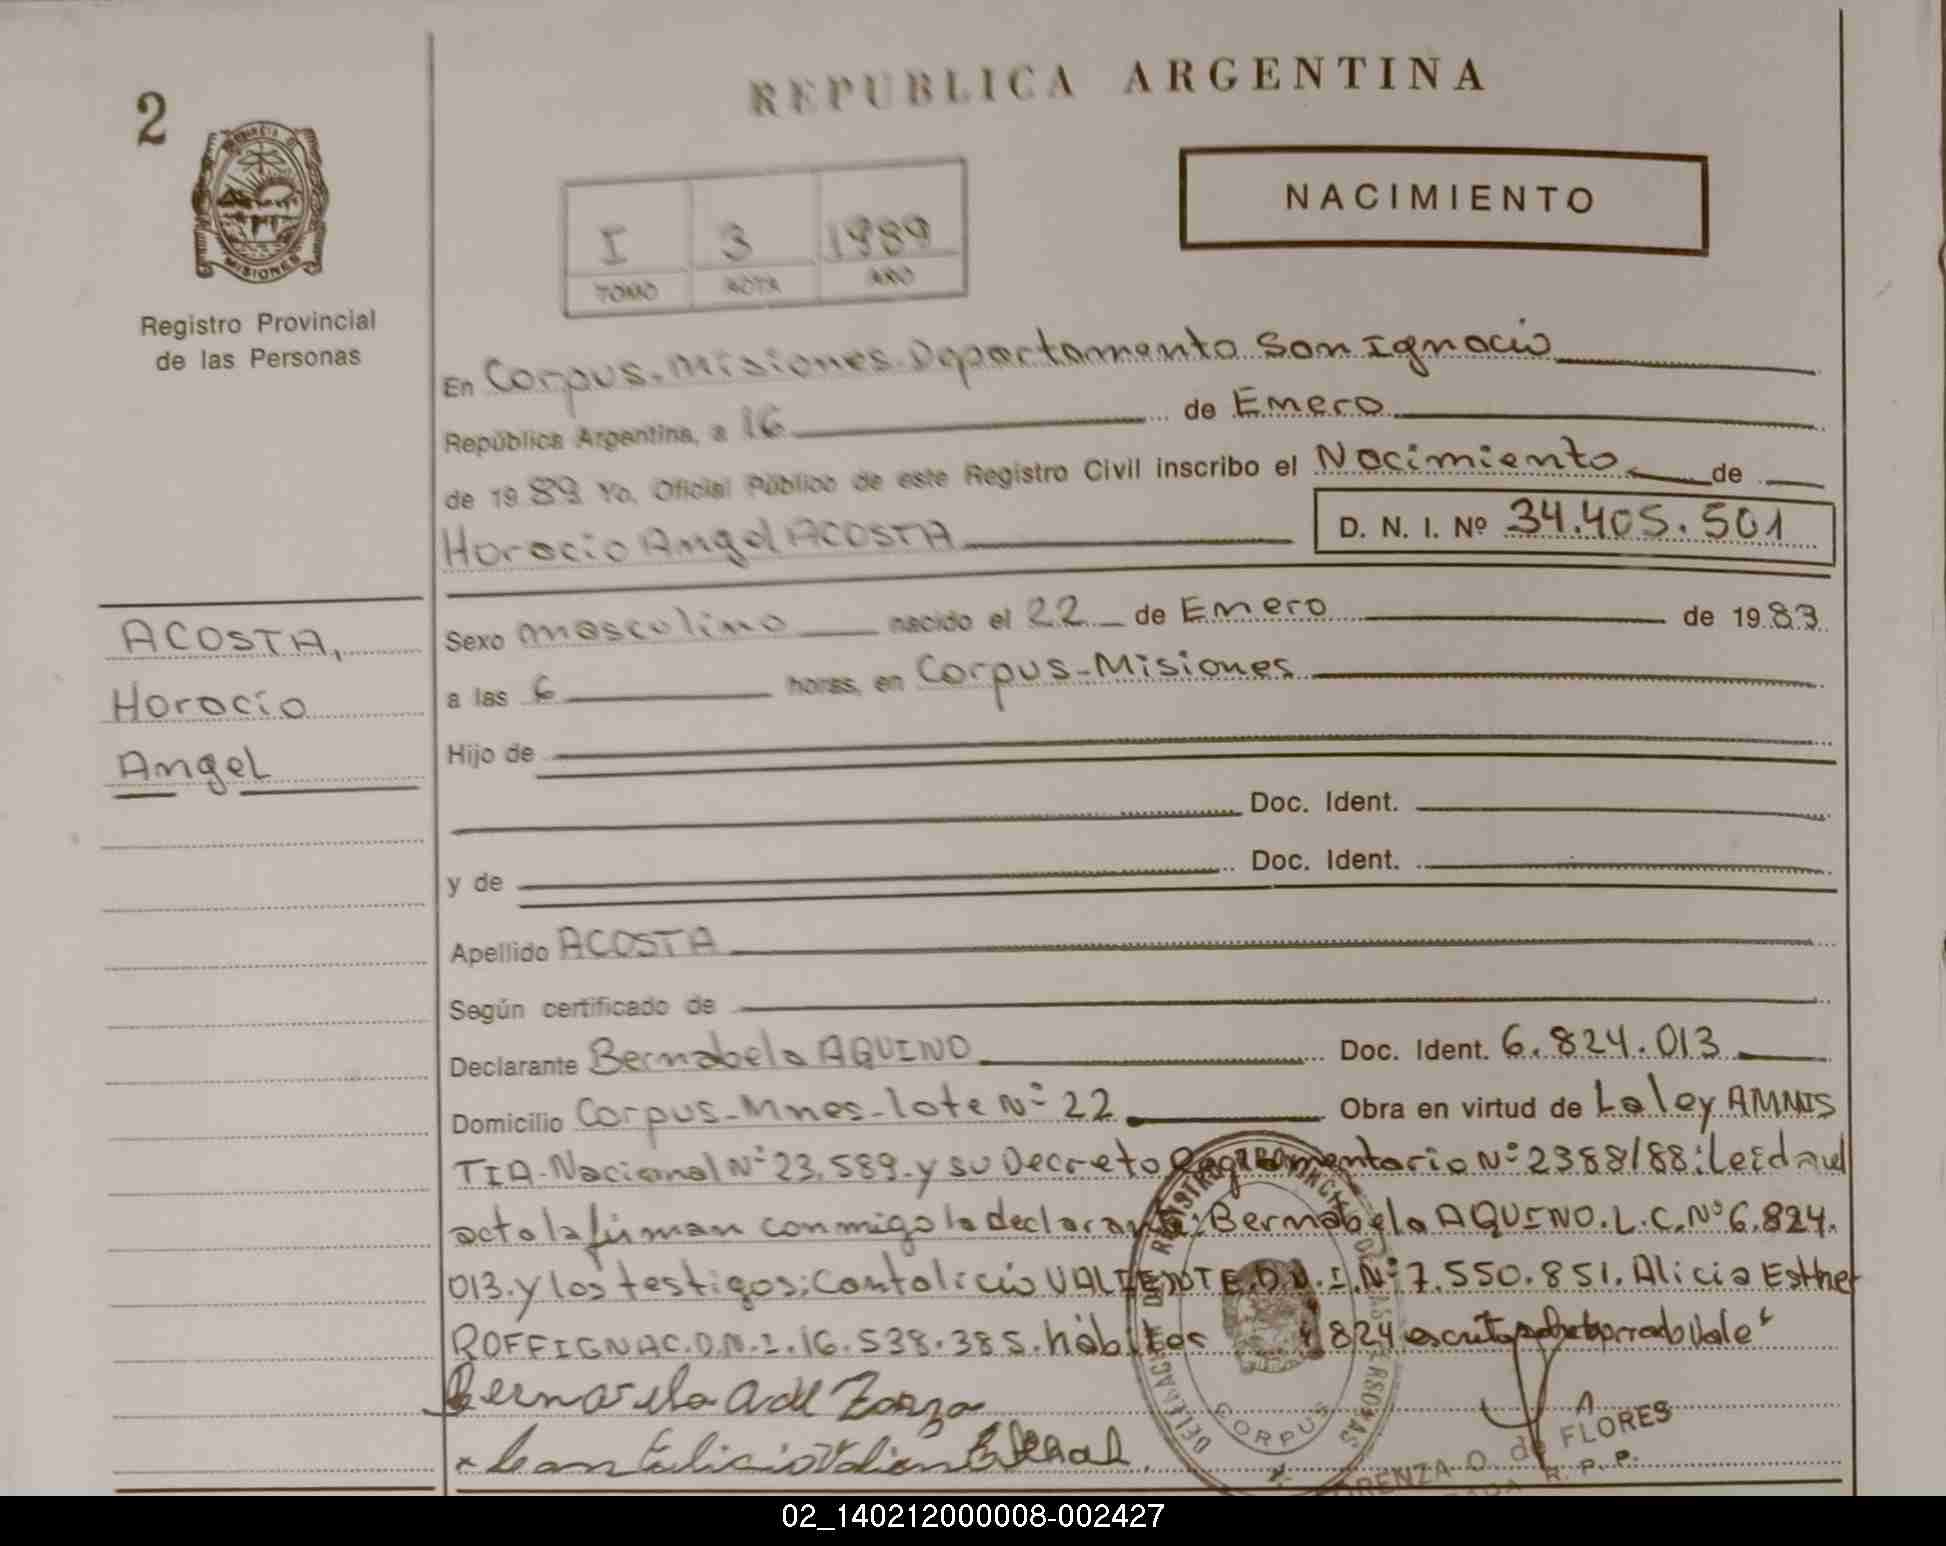 2
REPUBLICA ARGENTINA
NACIMIENTO
I 3 1989
TOMO ACTA AÑO
MISIONES
Registro Provincial
de las Personas
En Corpus-Misiones-Departamento San Ignacio
República Argentina, a 16 de Enero
de 1989 Yo, Oficial Público de este Registro Civil inscribo el Nacimiento de
Horacio Angel ACOSTA
D. N. I. Nº 34.405.501
ACOSTA,
Horacio
Angel
Sexo masculino nacido el 22 de Enero de 1983
a las 6 horas, en Corpus-Misiones
Hijo de
Doc. Ident.
y de Doc. Ident.
Apellido ACOSTA
Según certificado de
Declarante Bernabela AQUINO Doc. Ident. 6.824.013
Domicilio Corpus-Mnes-lote Nº 22 Obra en virtud de La ley AMNIS
TIA-Nacional Nº 23.589-y su Decreto Reglamentario Nº 2388/88: Leida el
acta la firman conmigo la declarante: Bernabela AQUINO.L.C.Nº 6.824.
013.y los testigos; Cantalicio VALIENTE.D.N.I.Nº 7.550.851. Alicia Esther
ROFFIGNAC.D.N.I.16.538.385.hábiles 824 escrito sobreborrado Vale"
CORPUS
FLORENZA O. de FLORES
R. P. P.
02_140212000008-002427